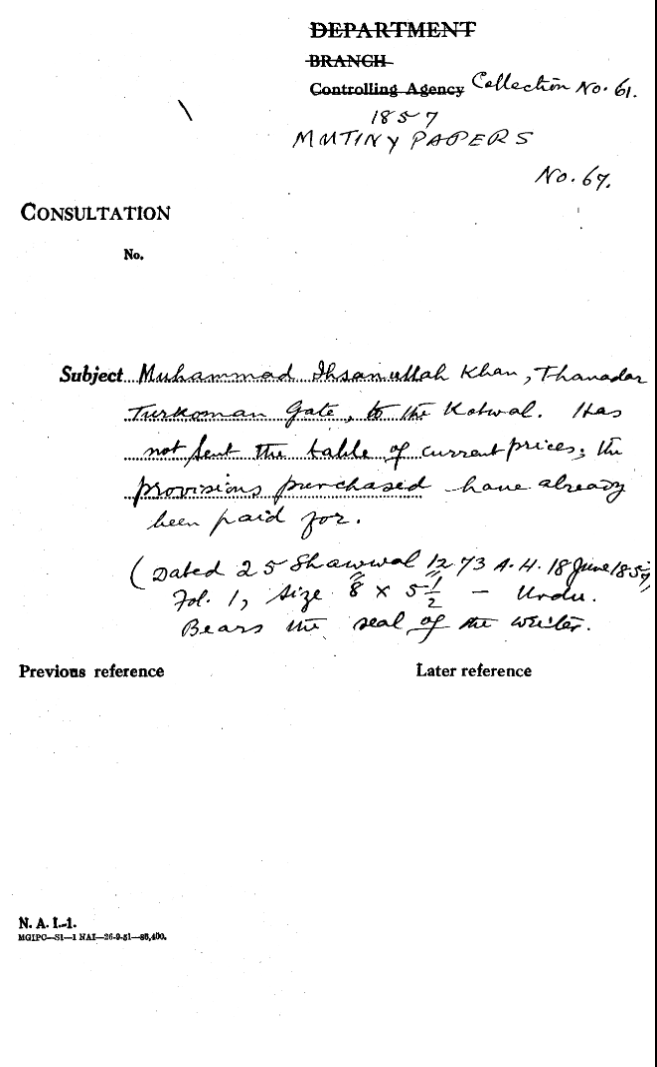 DEPARTMENT
BRANCH
Controlling Agency Collection No. 61.
1857
MUTINY PAPERS
No. 67.
CONSULTATION
No.
Subject Muhammad Ihsanullah Khan, Thanadar
Turkoman Gate, to the Kotwal. Has
not sent the table of current prices; the
provisions purchased have already
been paid for.
(Dated 25 Shawwal 1273 A.H. 18 June 1857,
Fol. 1, size 8" x 5 1/2" – Urdu.
Bears the seal of the writer.
Previous reference Later reference
N. A. I.-1.
MGIPC—S1—1 NAI—26-9-51—85,400.